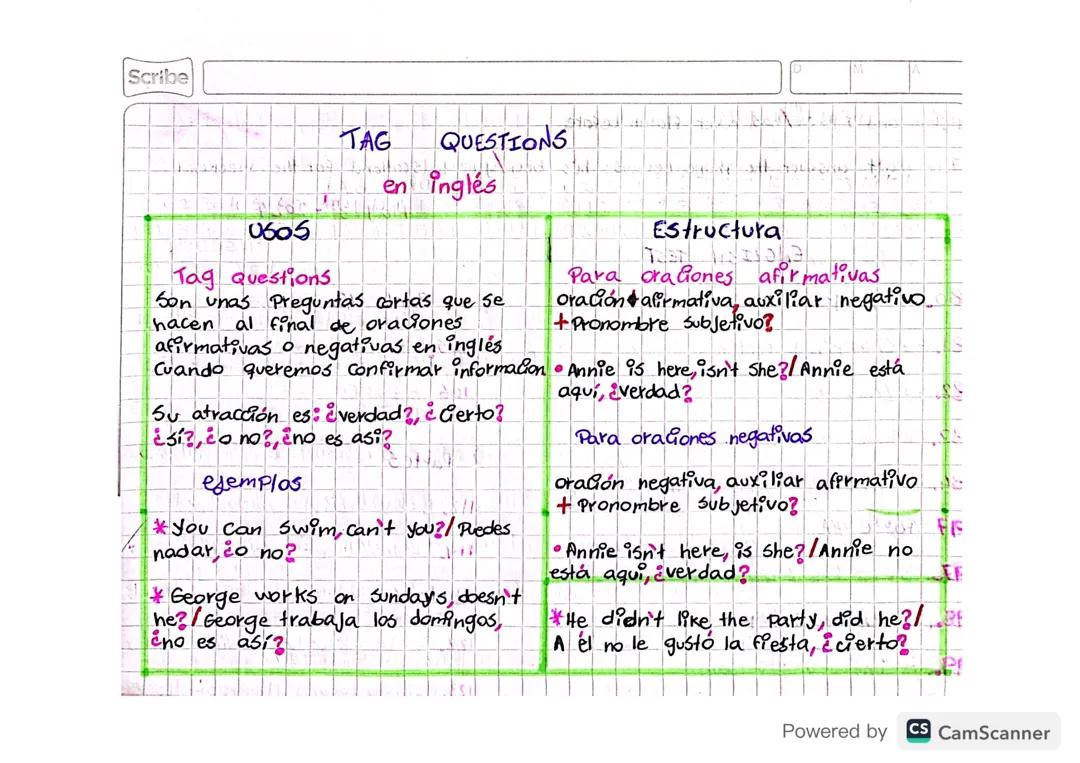 Scribe
D M A
TAG QUESTIONS
en inglés
USOS
Tag Questions
Son unas Preguntas cortas que se
hacen al final de oraciones
afirmativas o negativas en inglés
Cuando queremos confirmar información
Su atracción es: ¿verdad?, ¿Cierto?
¿Sí?, ¿o no?, ¿no es así?
ejemplos
* You can swim, can't you?/ Puedes
nadar, ¿o no?
* George works on sundays, doesn't
he?/ George trabaja los domingos,
¿no es así?
Estructura
Para oraciones afirmativas
oración + afirmativa, auxiliar negativo
+ Pronombre subjetivo?
• Annie is here, isn't she?/ Annie está
aquí, ¿verdad?
Para oraciones negativas
oración negativa, auxiliar afirmativo
+ Pronombre Subjetivo?
• Annie isn't here, is she?/ Annie no
está aquí, ¿verdad?
* He didn't like the party, did he?/
A él no le gustó la fiesta, ¿cierto?
Powered by CS CamScanner